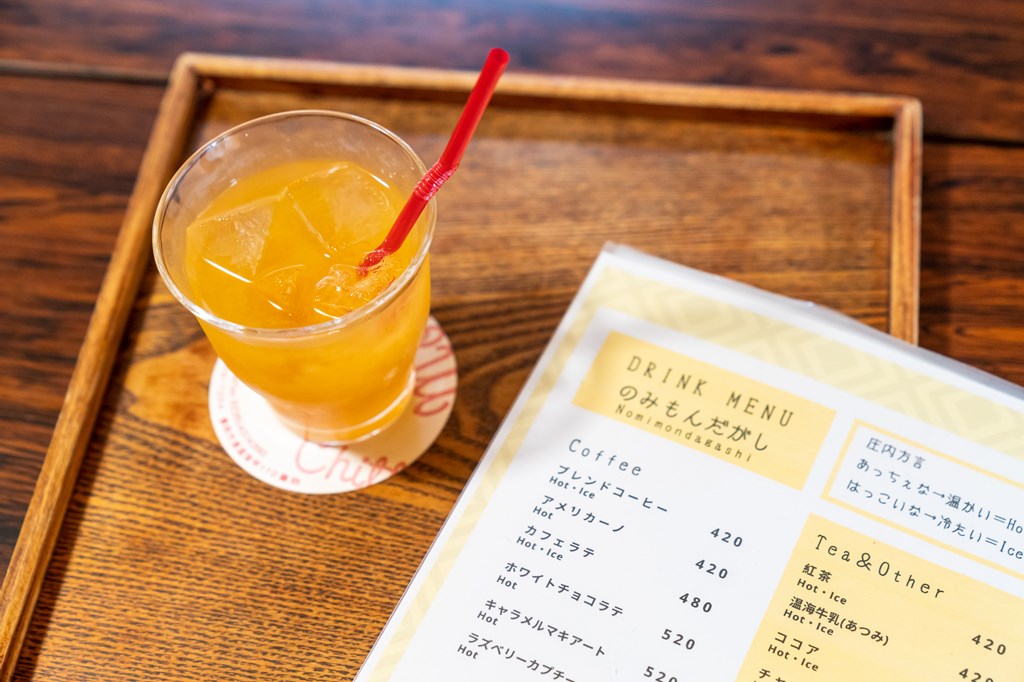 DRINK MENU
のみもんだがし
Nomimondagashi
Coffee
ブレンドコーヒー
Hot・Ice
420
アメリカーノ
Hot
420
カフェラテ
Hot・Ice
480
ホワイトチョコラテ
Hot
520
キャラメルマキアート
Hot
520
ラズベリーカプチー
Hot
庄内方言
あっちぇな→温かい＝Ho
はっこいな→冷たい＝Ice
Tea&Other
紅茶
Hot・Ice
420
温海牛乳(あつみ)
Hot・Ice
420
ココア
Hot・Ice
チャ
Chibo